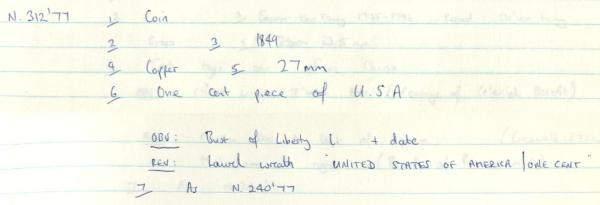 N. 312'77 1 Coin
2 3 1849
4 Copper 5 27mm
6 One cent piece of U.S.A
OBV: Bust of Liberty L + date
REV: Laurel wreath "UNITED STATES OF AMERICA / ONE CENT"
7 As N. 240'77